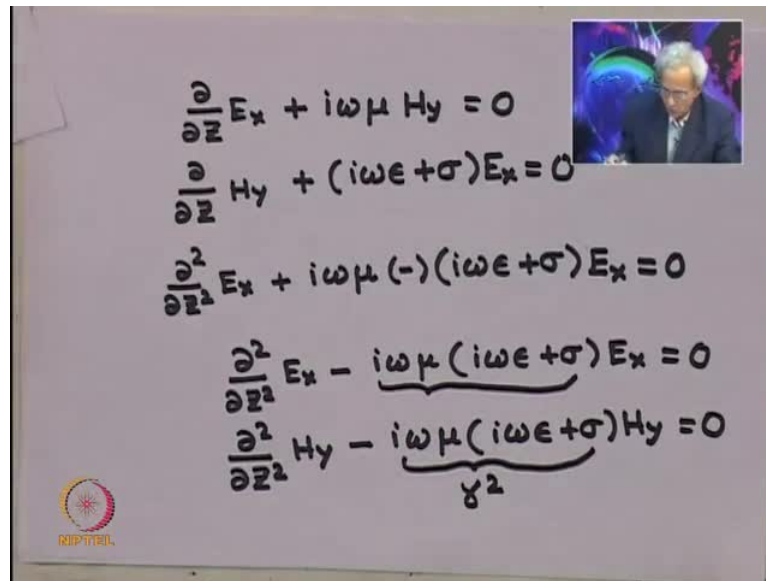 ∂/∂z Ex + iωμ Hy = 0
∂/∂z Hy + (iωϵ + σ) Ex = 0
∂²/∂z² Ex + iωμ (-) (iωϵ + σ) Ex = 0
∂²/∂z² Ex - iωμ (iωϵ + σ) Ex = 0
∂²/∂z² Hy - iωμ (iωϵ + σ) Hy = 0
γ²
NPTEL